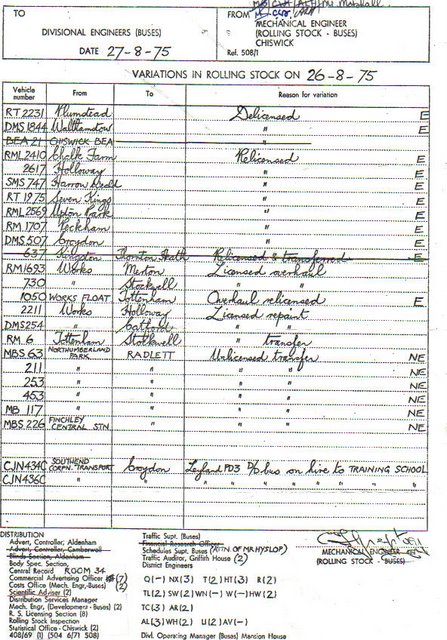 TO
FROM
DIVISIONAL ENGINEERS (BUSES)
MECHANICAL ENGINEER
(ROLLING STOCK - BUSES)
CHISWICK
DATE 27-8-75
Ref. 508/1
VARIATIONS IN ROLLING STOCK ON 26-8-75
Vehicle number From To Reason for variation
RT 2231 Plumstead Delicensed E
DMS 1844 Walthamstow " E
BEA 21 CHISWICK BEA "
RML 2410 Chalk Farm Relicensed E
2617 Holloway " E
SMS 747 Harrow Weald " E
RT 1975 Seven Kings " E
RML 2569 Upton Park " E
RM 1707 Peckham " E
DMS 507 Croydon " E
637 Kingston Thornton Heath Relicensed & transferred E
RM1693 Works Merton Licensed overhaul
730 " Stockwell " "
1050 WORKS FLOAT Tottenham Overhaul relicensed E
2211 Works Holloway Licensed repaint
DMS254 " Catford " "
RM 6 Tottenham Stockwell " transfer
MBS 63 NORTHUMBERLAND PARK RADLETT Unlicensed transfer NE
211 " " " " NE
253 " " " " NE
453 " " " " NE
MB 117 " " " " NE
MBS 226 FINCHLEY CENTRAL STN " " " NE
CJN434C SOUTHEND CORPN. TRANSPORT Croydon Leyland PD3 D/D bus on hire to TRAINING SCHOOL
CJN436C " " " " " " " " " "
DISTRIBUTION
Advert. Controller, Aldenham
Advert. Controller, Camberwell
Blinds Section, Aldenham
Body Spec. Section,
Central Record ROOM 34
Commercial Advertising Office (7)
Costs Office (Mech. Engr.-Buses) (2)
Scientific Adviser (2)
Distribution Services Manager
Mech. Engr, (Development - Buses) (2)
R. S. Licensing Section (8)
Rolling Stock Inspection
Statistical Office - Chiswick (2)
408/69 (1) (504 6/71 508)
Traffic Supt. (Buses)
Financial Research Officer
Schedules Supt. (Buses) (ATTN. OF MR HYSLOP)
Traffic Auditor, Griffith House (2)
District Engineers
Q(-) NX(3) T(2) HT(3) R(2)
TL(2) SW(2) WN(-) W(-) HW(2)
TC(3) AR(2)
AL(3) WH(2) U(2) AV(-)
Divl. Operating Manager (Buses) Mansion House
MECHANICAL ENGINEER
(ROLLING STOCK - BUSES)